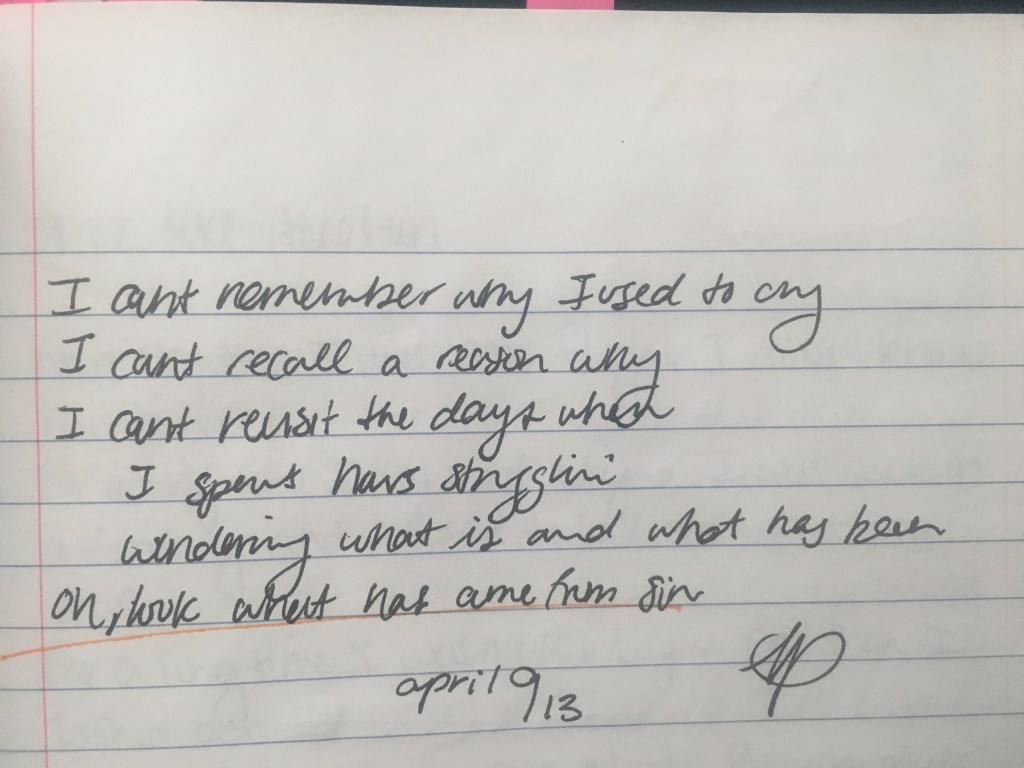 I cant remember why I used to cry
I cant recall a reason why
I cant revisit the days when
I spent hours strugglin
wondering what is and what has been
Oh, look what has come from sin
april 9 13